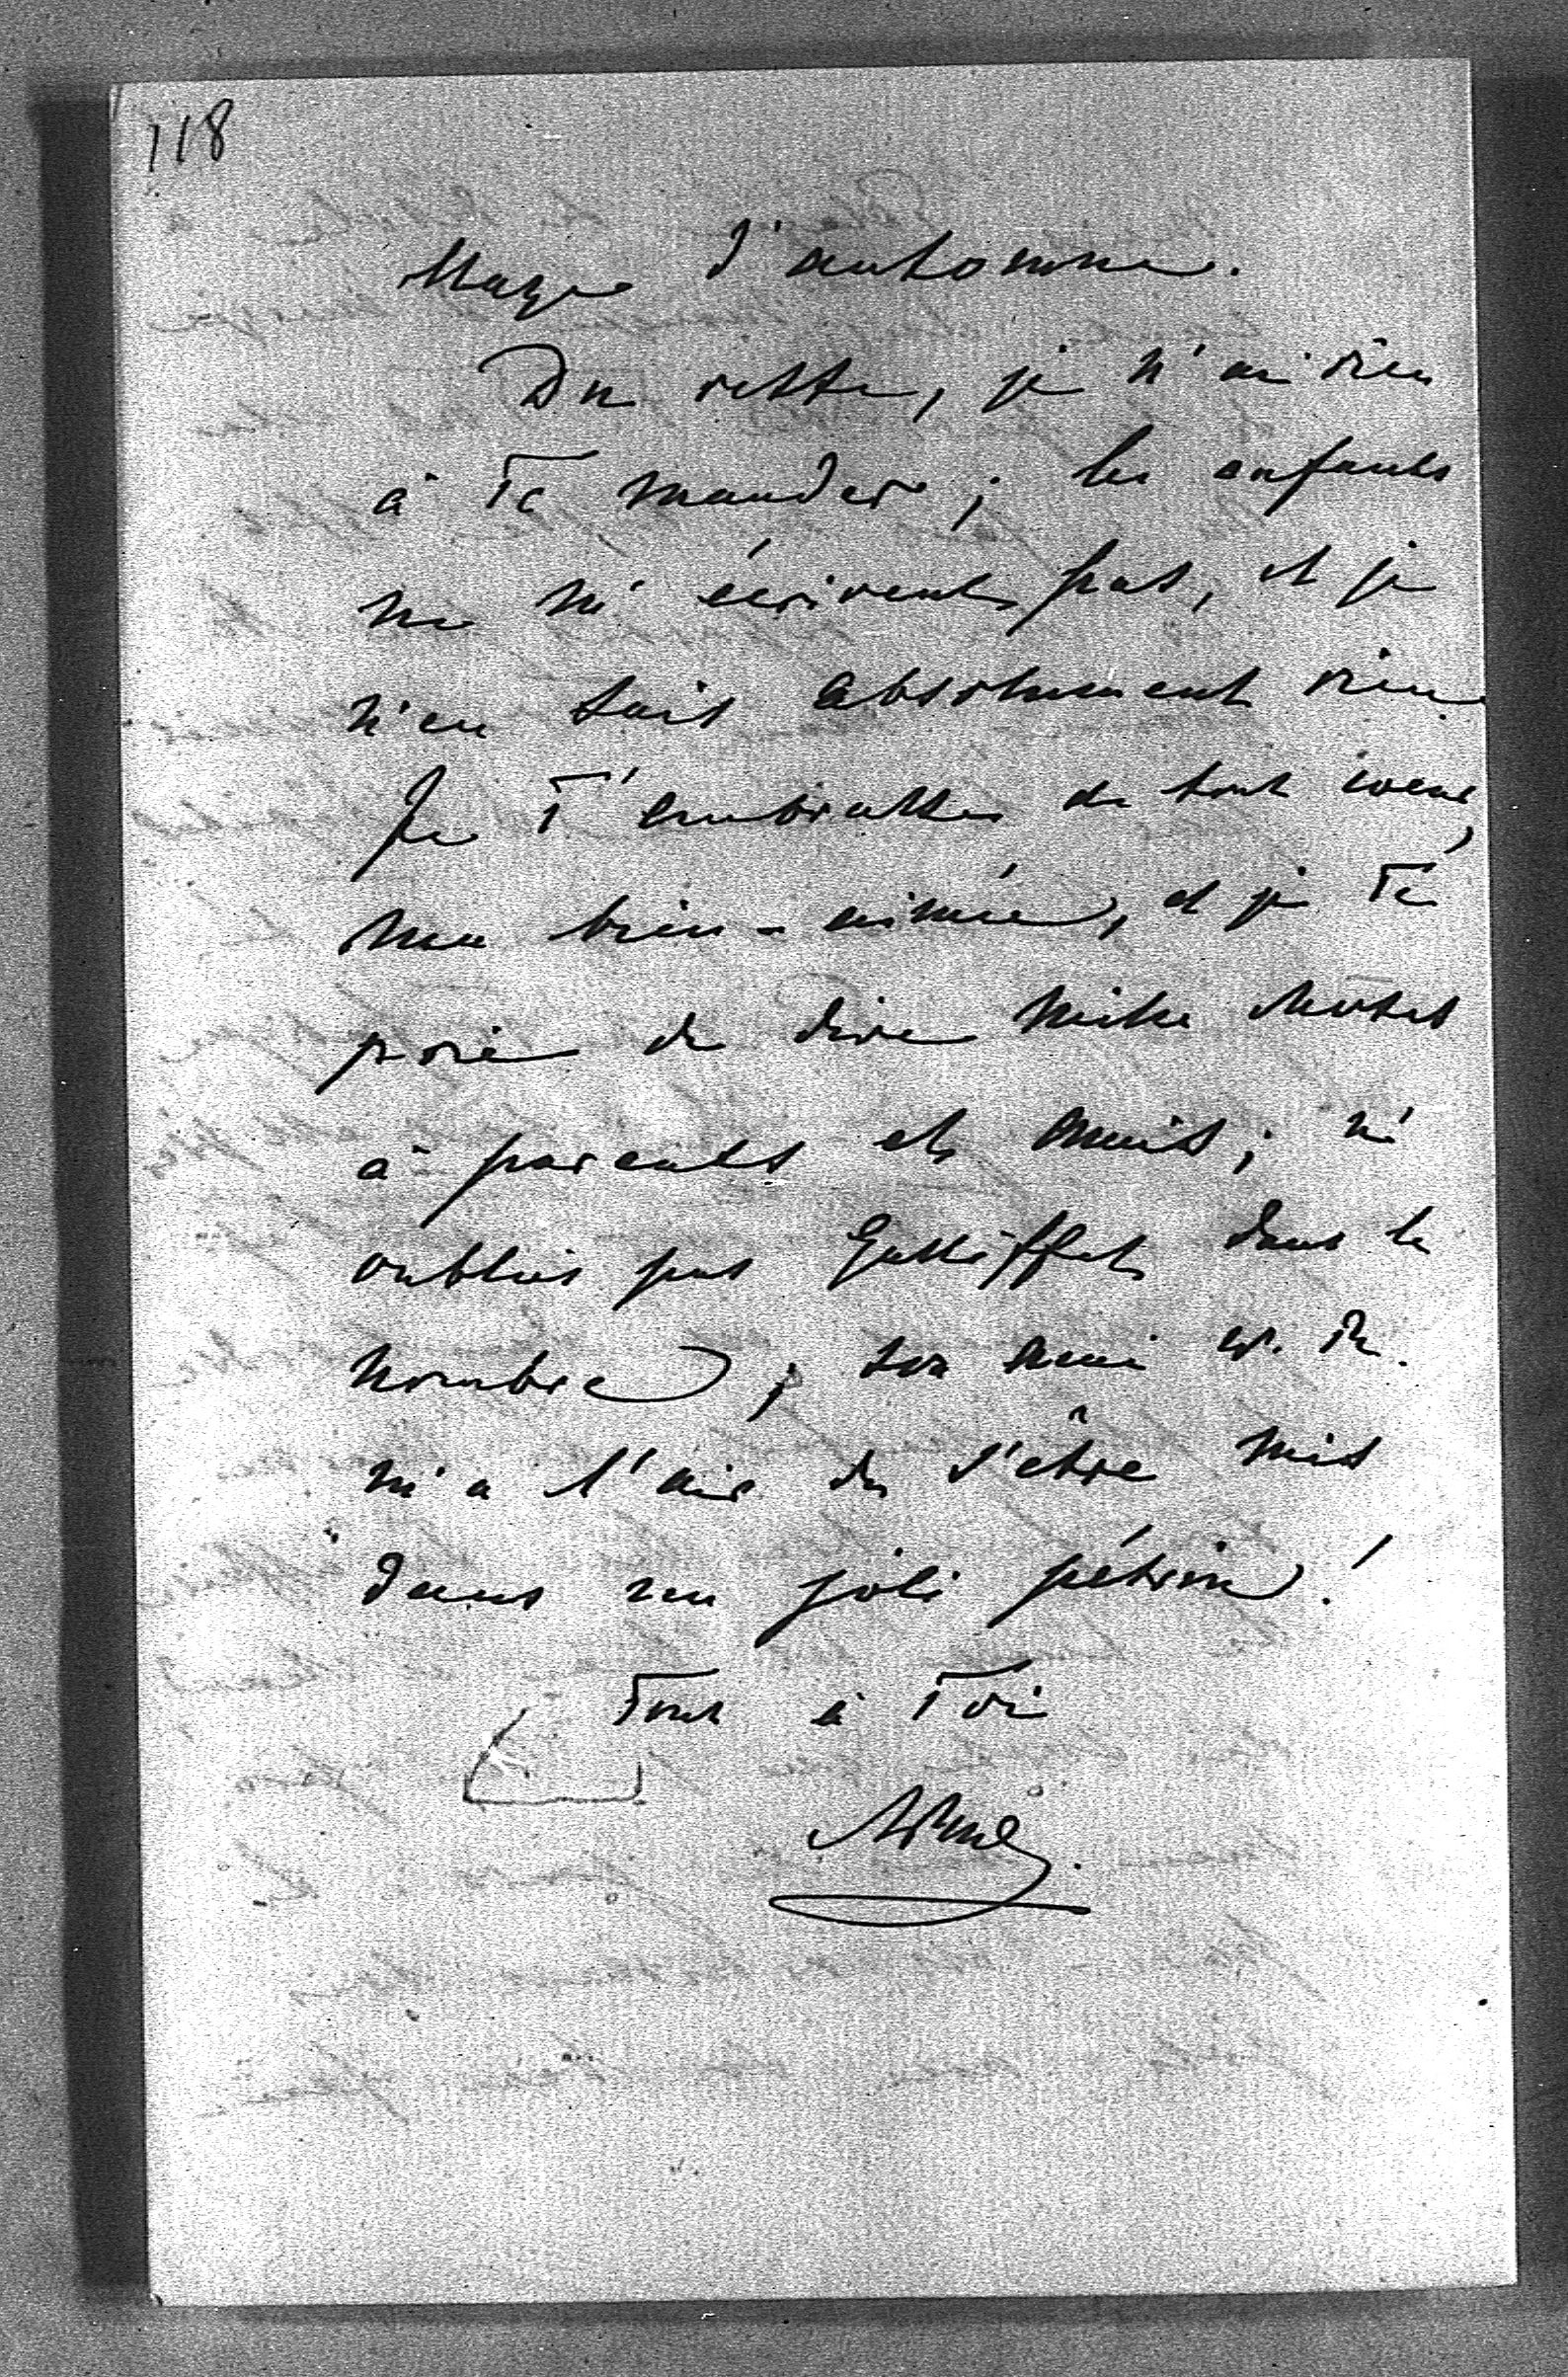 118
d'automne.
Du reste, je n'ai rien
à Te mander; les enfants
ne m'écrivent pas, et je
n'en sais absolument rien
Je T'embrasse de tout coeur,
ma bien-aimée, et je Te
prie de dire mille choses
à parents et amis; n'
oublies pas Galliffet dans le
nombre; son ami W. R.
m'a l'air de s'être mis
dans un joli pétrin!
Tout à Toi